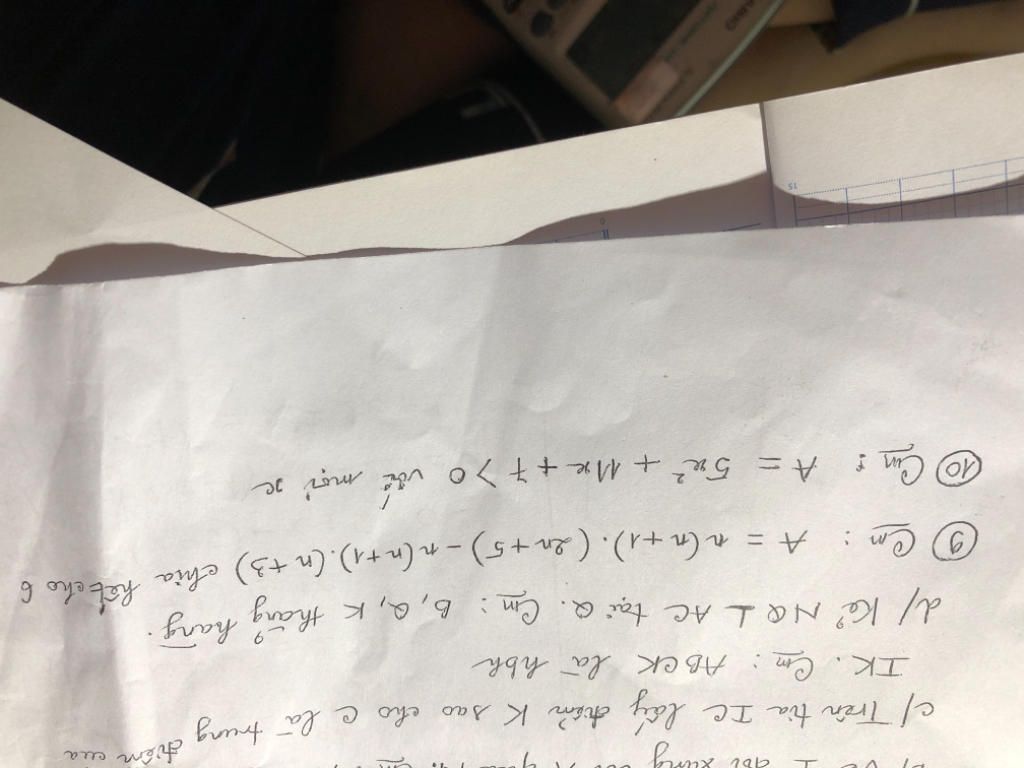 I đối xứng
c/ Trên tia IC lấy điểm K sao cho C là trung điểm của
IK. Cm: ABCK là hbh
d/ Kẻ NQ ⊥ AC tại Q. Cm: B, Q, K thẳng hàng.
⑨ Cm: A = n(n+1).(2n+5) - n(n+1).(n+3) chia hết cho 6
⑩ Cm: A = 5x² + 11x + 7 > 0 với mọi x
0
15